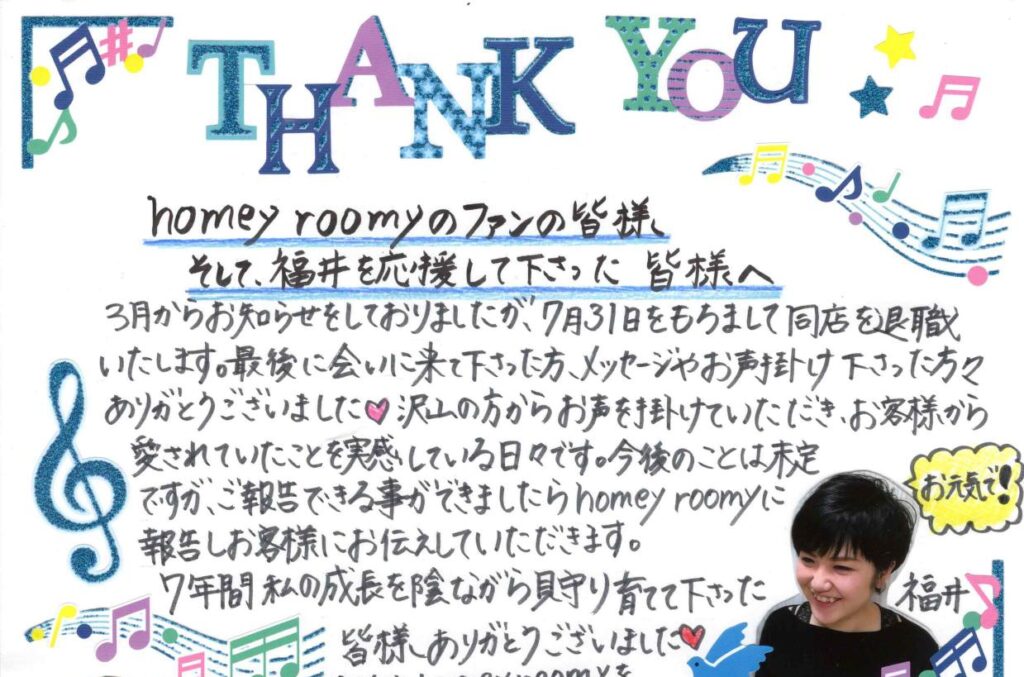 THANK YOU
homey roomyのファンの皆様、
そして、福井を応援して下さった 皆様へ
3月からお知らせをしておりましたが、7月31日をもちまして同店を退職
いたします。最後に会いに来て下さった方、メッセージやお声掛け下さった方々
ありがとうございました♥沢山の方からお声を掛けていただき、お客様から
愛されていたことを実感している日々です。今後のことは未定
ですが、ご報告できる事ができましたらhomey roomyに
報告しお客様にお伝えしていただきます。
お元気で!
7年間私の成長を陰ながら見守り育てて下さった
福井
皆様、ありがとうございました♥